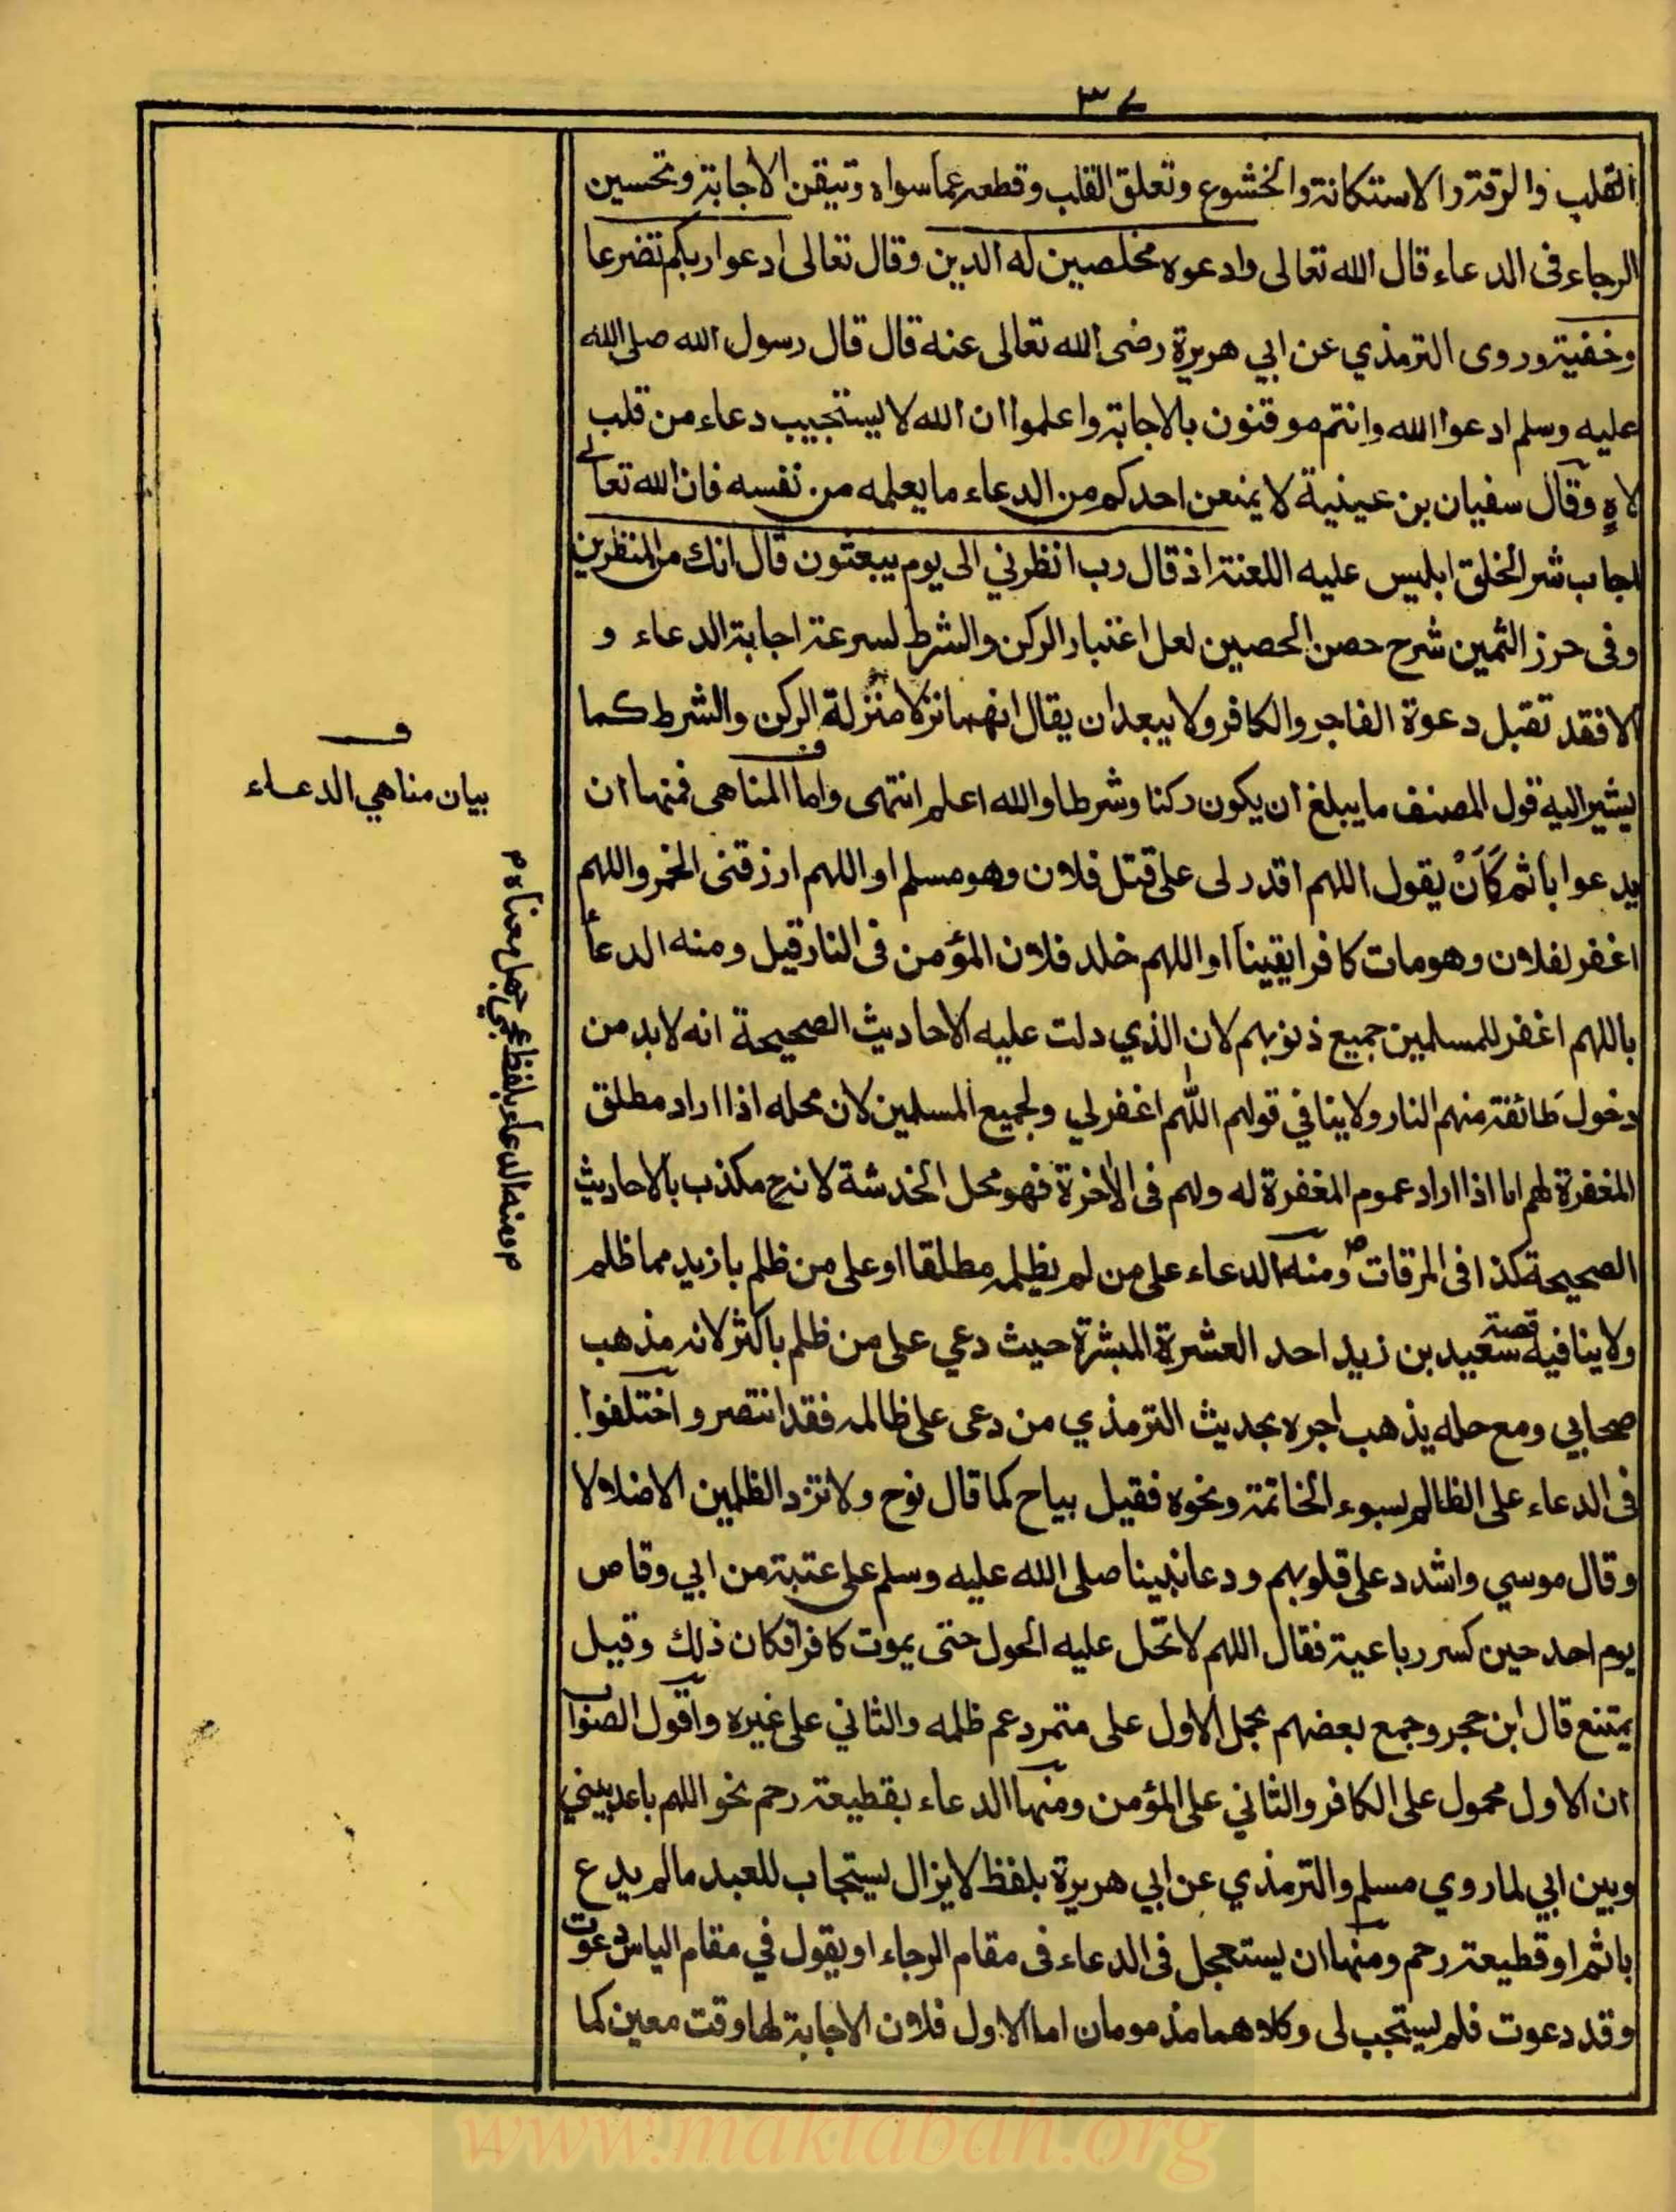 ٣٧
القلب والرقة والاستكانة والخشوع وتعلق القلب وقطعه عما سواه وتيقن الاجابة وتحسين
الرجاء فى الدعاء قال الله تعالى وادعوه مخلصين له الدين وقال تعالى ادعوا ربكم تضرعا
وخفية وروى الترمذي عن ابي هريرة رضى الله تعالى عنه قال قال رسول الله صلى الله
عليه وسلم ادعوا الله وانتم موقنون بالاجابة واعلموا ان الله لا يستجيب دعاء من قلب
لاهٍ وقال سفيان بن عيينية لا يمنعن احدكم من الدعاء ما يعلمه من نفسه فان الله تعالى
اجاب شر الخلق ابليس عليه اللعنة اذ قال رب انظرني الى يوم يبعثون قال انك من المنظرين
وفى حرز الثمين شرح حصن الحصين لعل اعتبار الركن والشرط لسرعة اجابة الدعاء و
الا فقد تقبل دعوة الفاجر والكافر ولا يبعد ان يقال انهما نزلا منزلة الركن والشرط كما
يشير اليه قول المصنف ما يبلغ ان يكون ركنا وشرطا والله اعلم انتهى واما المناهى فمنها ان
يدعوا باثم كَاَنْ يقول اللهم اقدر لى على قتل فلان وهو مسلم او اللهم ارزقنى الخمر واللهم
اغفر لفلان وهو مات كافرا يقيناً او اللهم خلد فلان المؤمن فى النار قيل ومنه الدعأ
باللهم اغفر للمسلمين جميع ذنوبهم لان الذي دلت عليه الاحاديث الصحيحة انه لا بد من
دخول طائفة منهم النار ولا ينافي قولهم اللّٰهم اغفر لي ولجميع المسلمين لان محله اذا اراد مطلق
المغفرة لهم اما اذا اراد عموم المغفرة له ولهم فى الاٰخرة فهو محل الخدشة لانه ح مكذب بالاحاديث
الصحيحة كذا فى المرقات م ومنه الدعاء على من لم يظلمه مطلقا او على من ظلم بازيد مما ظلم
ولا ينافيه قصة سعيد بن زيد احد العشرة المبشرة حيث دعي على من ظلم باكثر لانه مذهب
صحابي ومع حله يذهب اجره بحديث الترمذي من دعى على ظالمه فقد انتصر واختلفوا
فى الدعاء على الظالم بسوء الخاتمة ونحوه فقيل يباح كما قال نوح ولا تزد الظلمين الا ضلالا
وقال موسي واشدد على قلوبهم ودعا نبينا صلى الله عليه وسلم على عتبة من ابي وقاص
يوم احد حين كسر رباعية فقال اللهم لا تحل عليه الحول حتى يموت كافرا فكان ذلك وقيل
يمتنع قال ابن حجر وجمع بعضهم بحمل الاول على متمرد عم ظلمه والثاني على غيره واقول الصواب
ان الاول محمول على الكافر والثاني على المؤمن ومنها الدعاء بقطيعة رحم نحو اللهم باعد بيني
وبين ابي لما روي مسلم والترمذي عن ابي هريرة بلفظ لا يزال يستجاب للعبد ما لم يدع
باثم او قطيعة رحم ومنها ان يستعجل فى الدعاء فى مقام الرجاء او يقول في مقام الياس دعوت
وقد دعوت فلم يستجب لى وكلاهما مذمومان اما الاول فلان الاجابة لها وقت معين كما
ف
بيان مناهي الدعاء
م ومنه الدعاء بلفظ عجمي جهل معناه م
www.maktabah.org